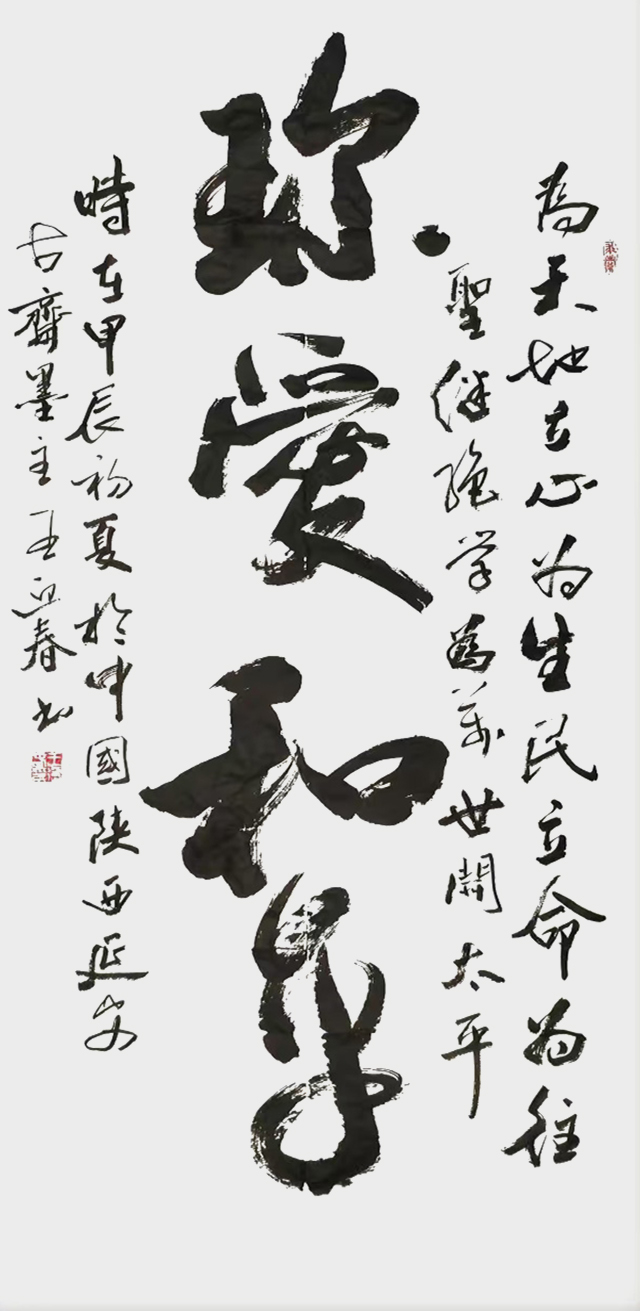 為天地立心为生民立命为往
聖继绝学為萬世開太平
珍愛和平
時在甲辰初夏於中國陕西延安
古齋墨主王迎春书